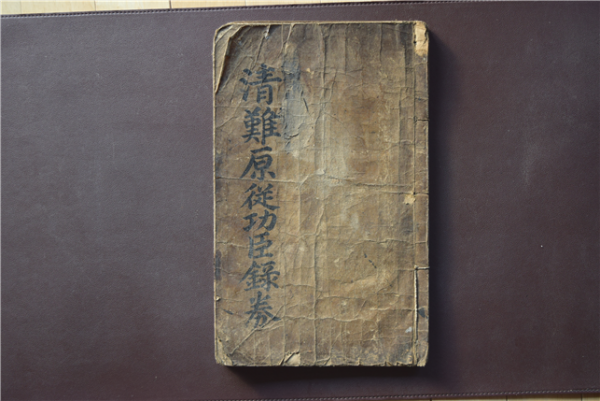 清難原從功臣錄卷